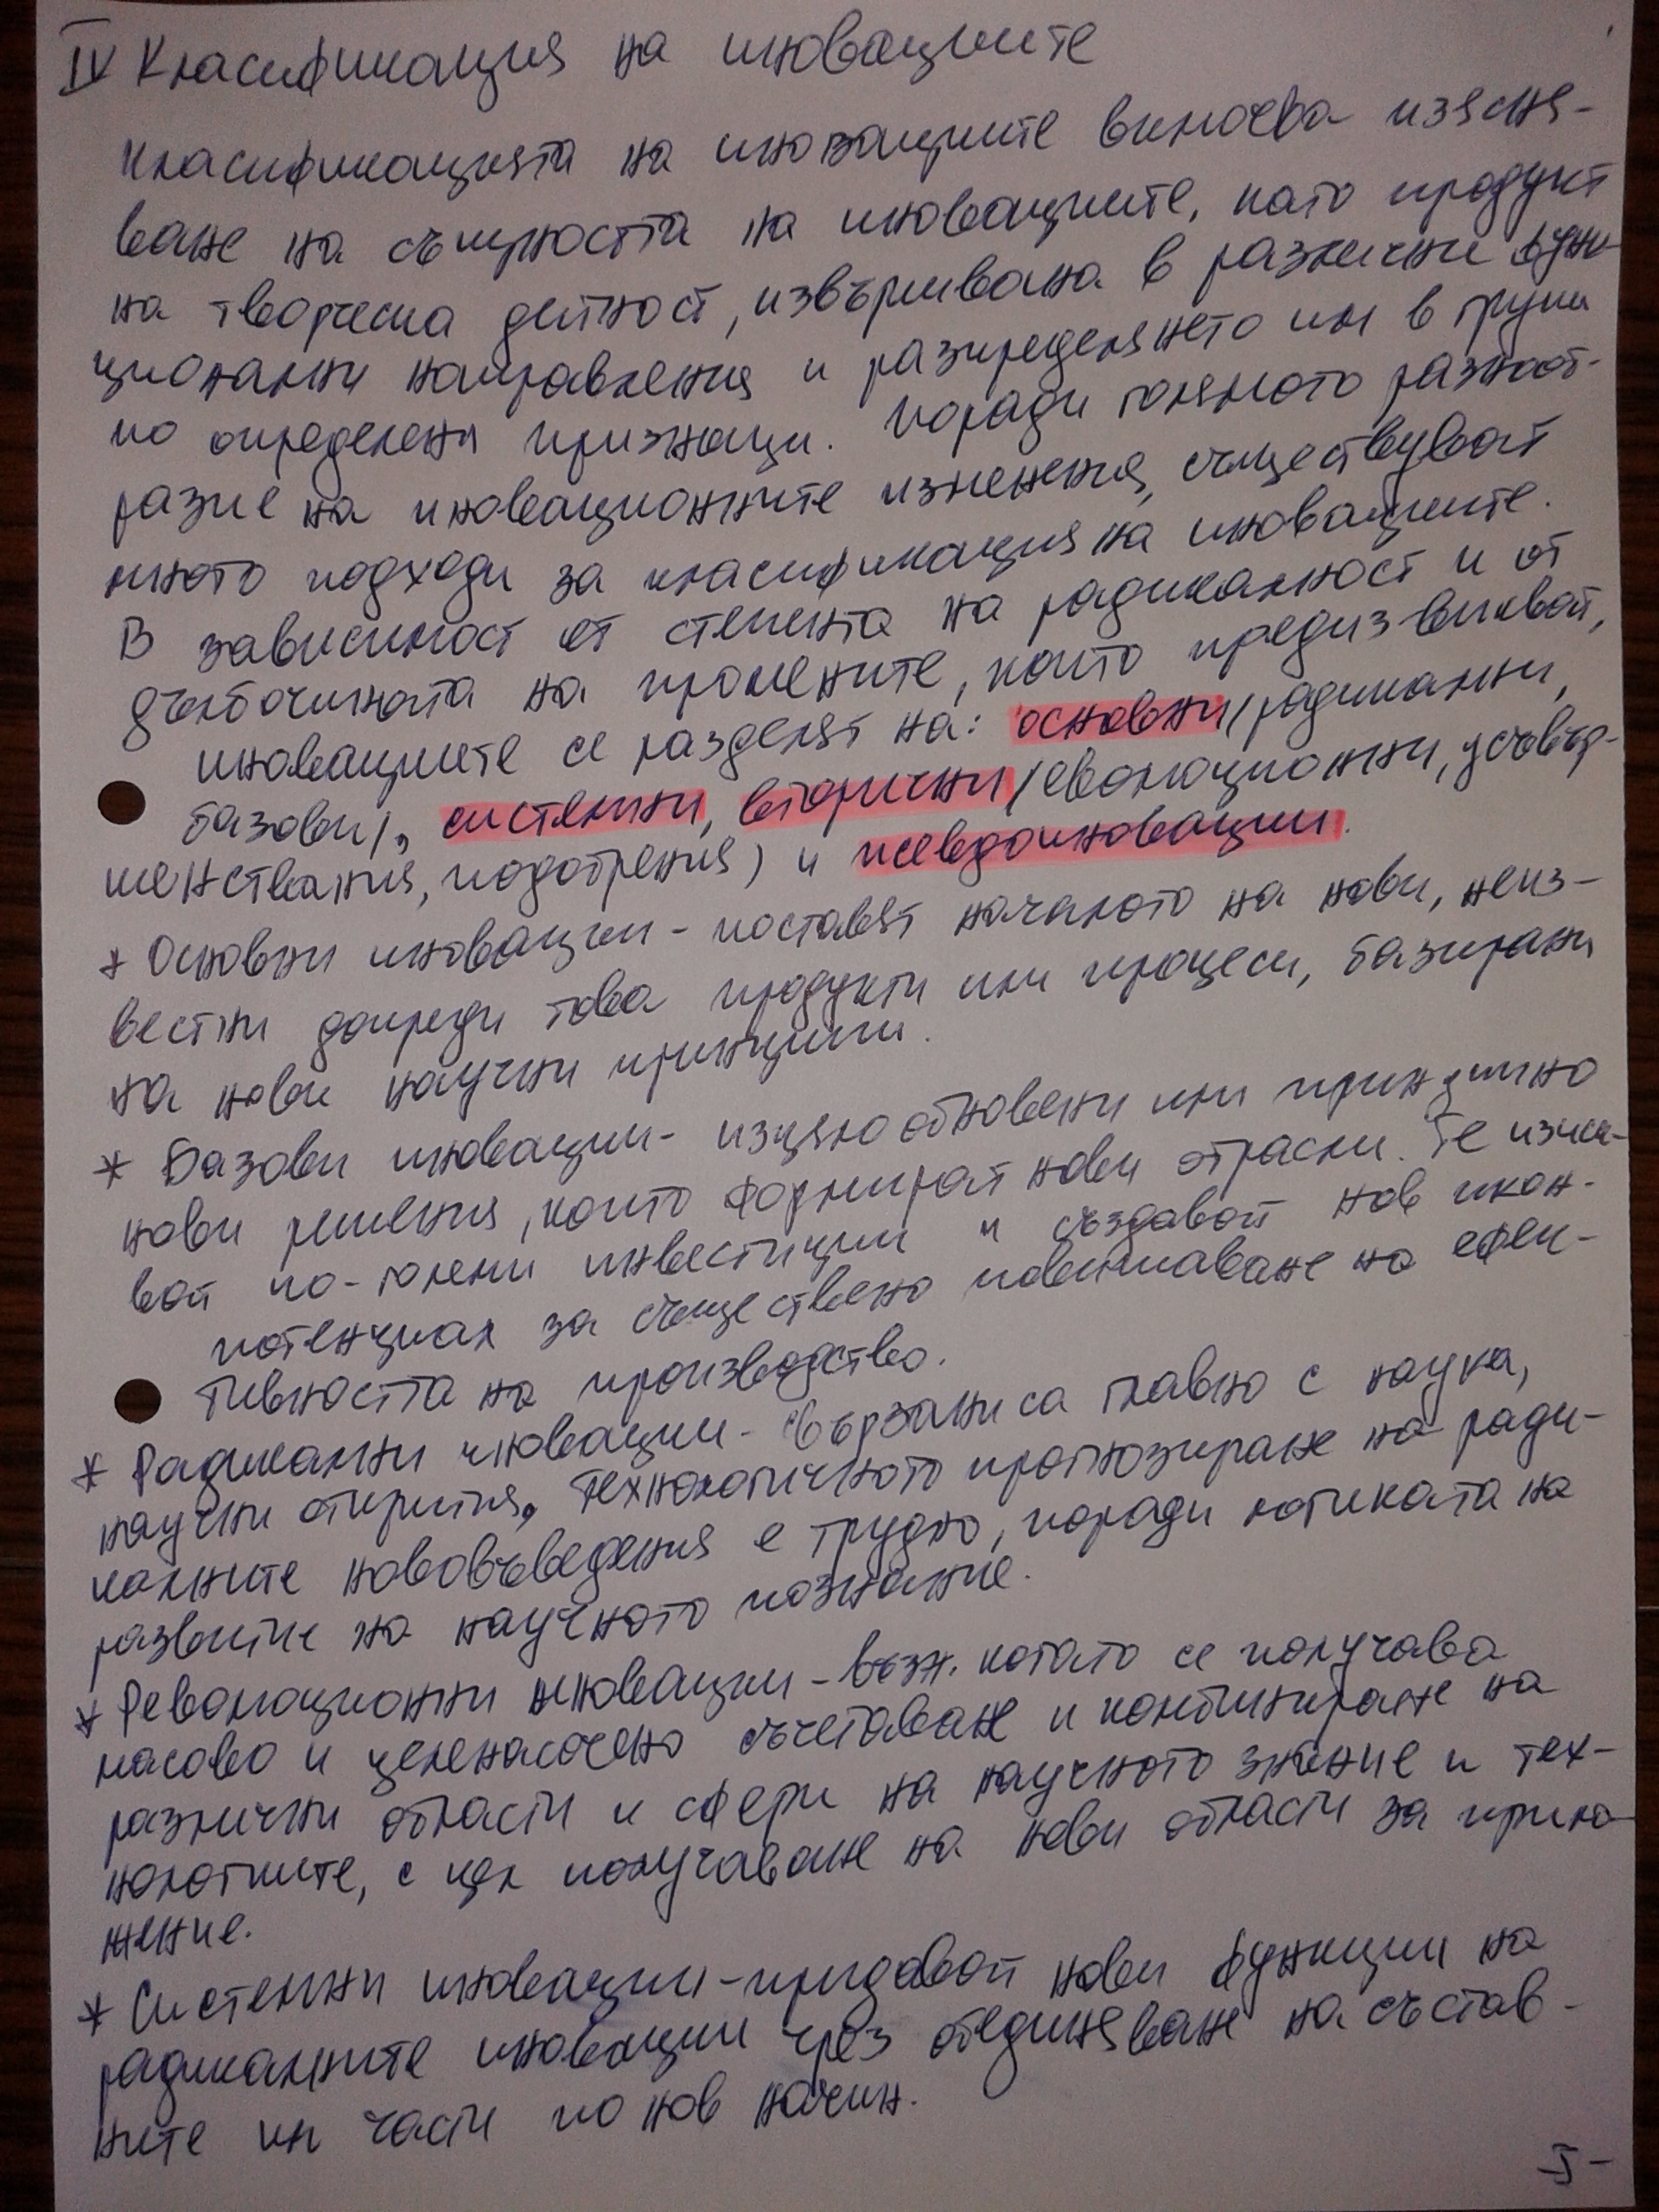 IV Класификация на иновациите
Класификацията на иновациите включва изясня-
ване на същността на иновациите, като продукт
на творческа дейност, извършвана в различни функ-
ционални направления и разпределянето им в групи
по определени признаци. Поради голямото разнооб-
разие на иновационните изменения, съществуват
много подходи за класификация на иновациите.
В зависимост от степента на радикалност и от
дълбочината на промените, които предизвикват,
иновациите се разделят на: основни/радикални,
базови/, системни, вторични/еволюционни, усъвър-
шенствания, подобрения) и псевдоиновации.
* Основни иновации - поставят началото на нови, неиз-
вестни допреди това продукти или процеси, базирани
на нови научни принципи.
* Базови иновации - изцяло обновени или принципно
нови решения, които формират нови отрасли. Те изиск-
ват по-големи инвестиции и създават нов икон.
потенциал за съществено повишаване на ефек-
тивността на производство.
* Радикални иновации - свързани са главно с наука,
научни открития. Технологичното прогнозиране на ради-
калните нововъведения е трудно, поради логиката на
развитие на научното познание.
* Революционни иновации - възн. когато се получава
масово и целенасочено съчетаване и комбиниране на
различни области и сфери на научното знание и тех-
нологиите, с цел получаване на нови области за прило-
жение.
* Системни иновации - придават нови функции на
радикалните иновации чрез обединяване на състав-
ните им части по нов начин.
-5-